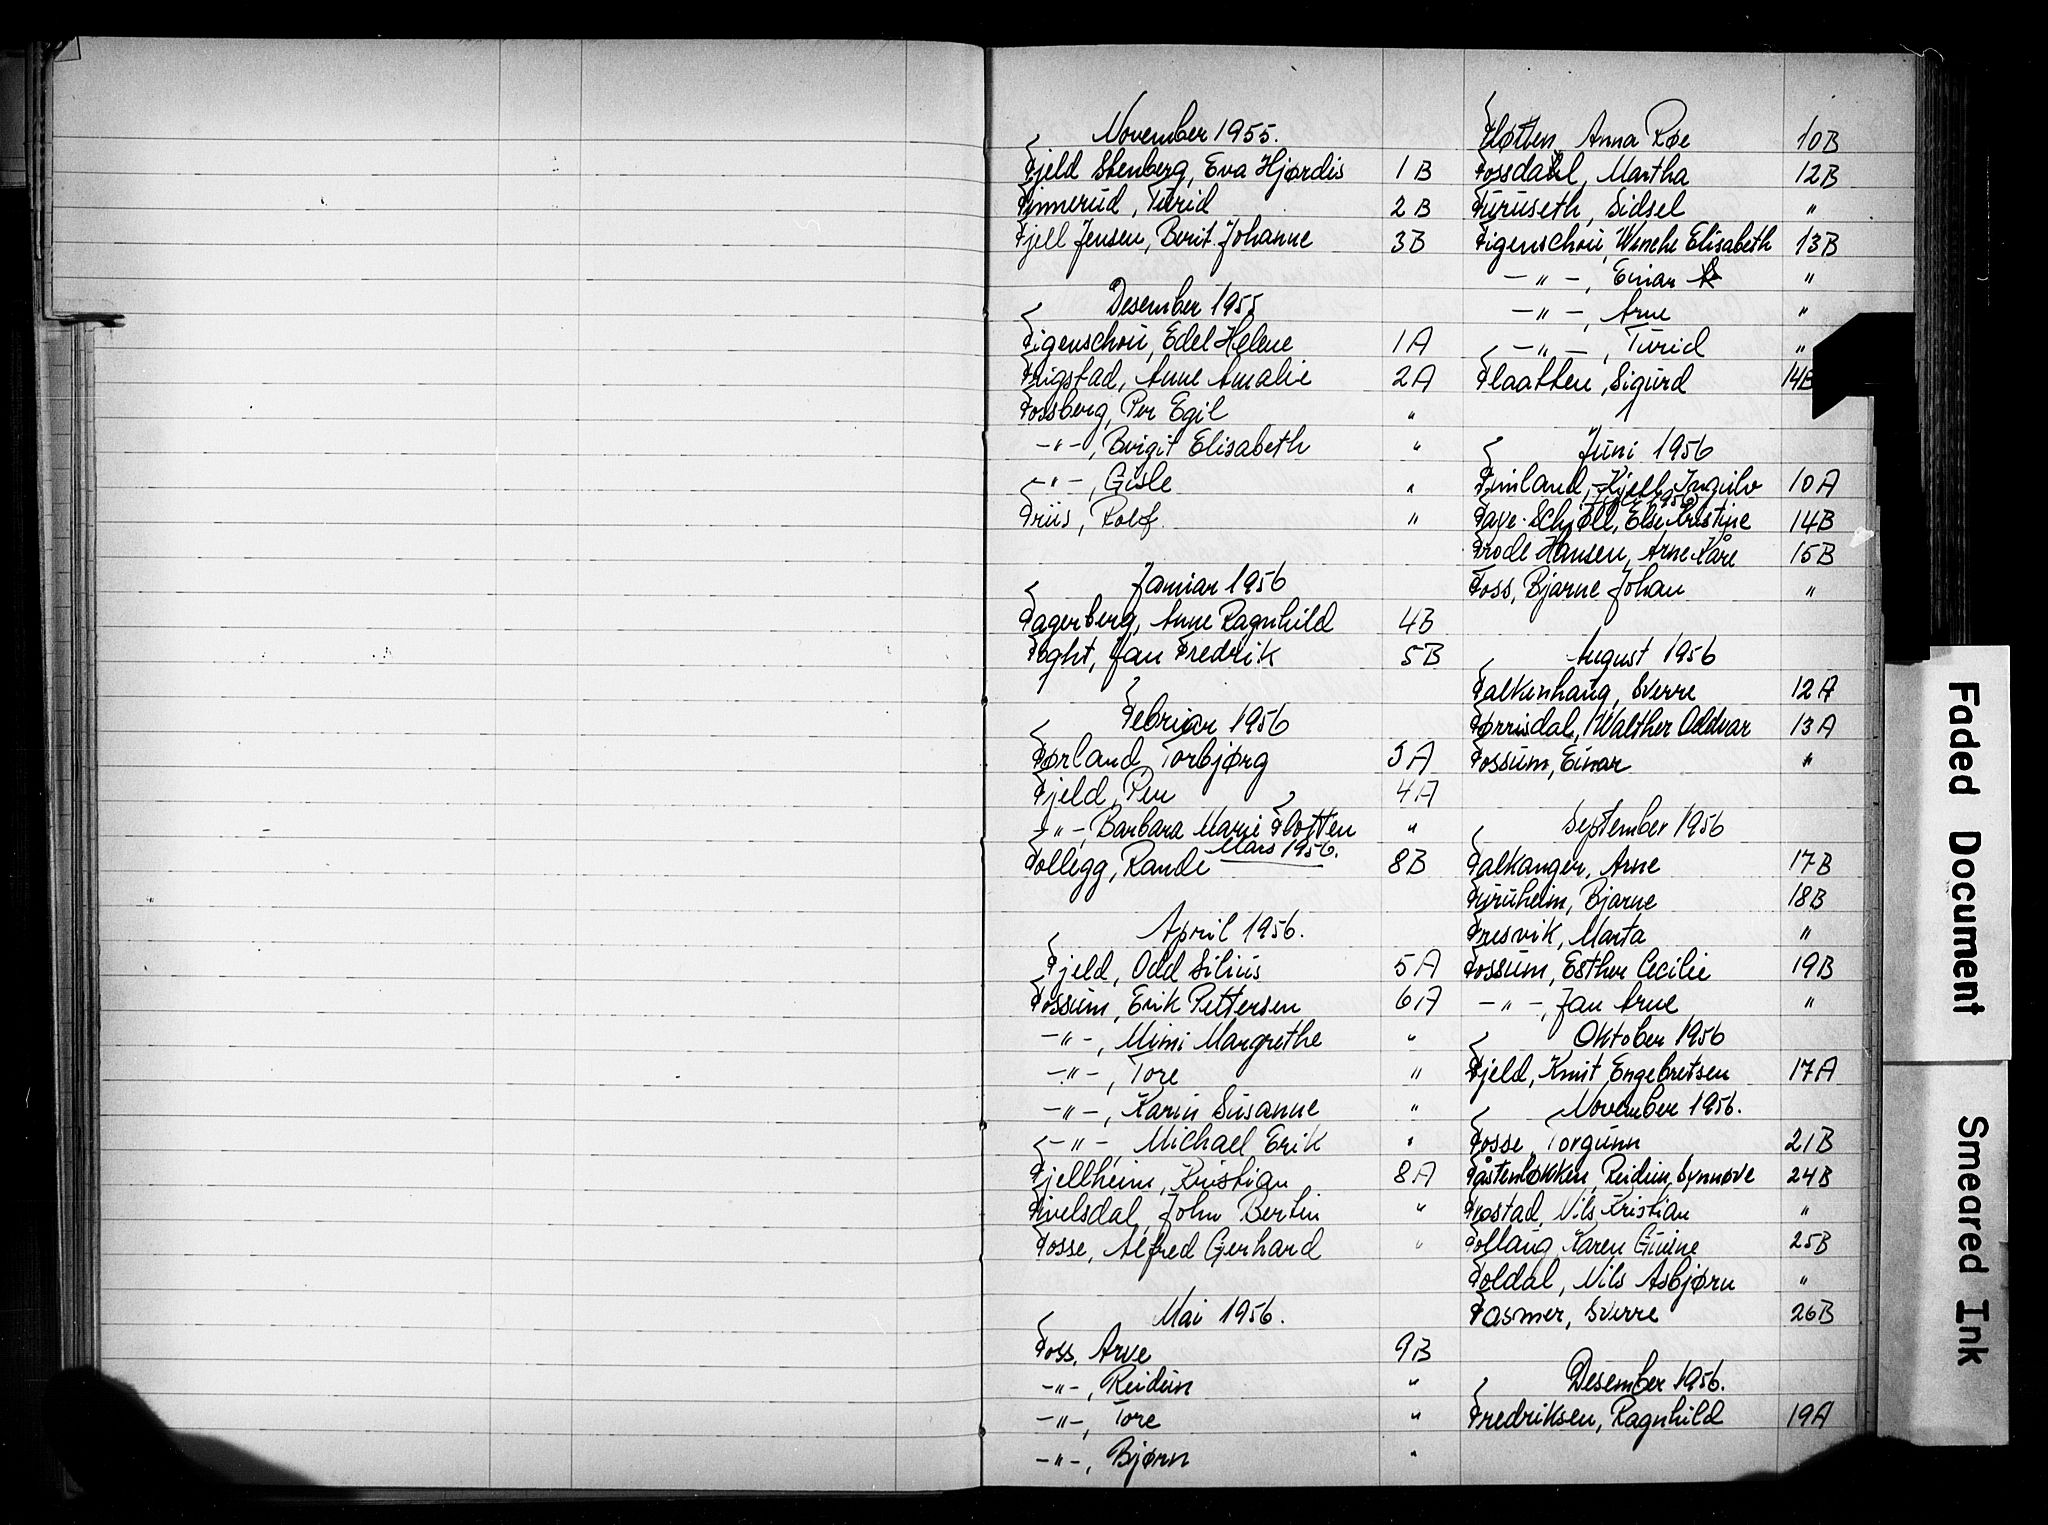 November 1955.
Fjeld Stenberg, Eva Hjørdis 1B
Finnerud, Turid 2B
Fjell Jensen, Berit Johanne 3B
Desember 1955
Figenschou, Edel Helene 1A
Frigstad, Anne Amalie 2A
Fossberg, Per Egil "
-"-, Birgit Elisabeth "
-"-, Gisle "
Friis, Rolf. "
Januar 1956
Fagerberg, Anne Ragnhild 4B
Foght, Jan Fredrik 5B
Februar 1956
Førland, Torbjørg 3A
Fjeld, Per 4A
-"-, Barbara Marie Flotten "
Mars 1956.
Follegg, Rande 8B
April 1956.
Fjeld, Odd Silius 5A
Fossum, Erik Pettersen 6A
-"-, Mimi Margrethe "
-"-, Tore "
-"-, Karin Susanne "
-"-, Michael Erik "
Fjellheim, Kristian 8A
Fivelsdal, John Bertin "
Fosse, Alfred Gerhard "
Mai 1956.
Foss, Arve 9B
-"-, Reidun "
-"-, Tore "
-"-, Bjørn "
Fløtten, Anna Røe 10B
Fossdahl, Martha 12B
Furuseth, Sidsel "
Figenschou, Wenche Elisabeth 13B
-"-, Einar "
-"-, Arne "
-"-, Turid "
Flaatten, Sigurd 14B
Juni 1956
Finland, Kjell Ingulv 10A
Juli 1956
Faye-Schjøll, Else Kristine 14B
Frode Hansen, Arne Kåre 15B
Foss, Bjarne Johan "
August 1956
Falkenhaug, Sverre 12A
Førrisdal, Walther Oddvar 13A
Fossum, Einar "
September 1956
Falkanger, Arne 17B
Furuheim, Bjarne 18B
Fresvik, Marta "
Fossum, Esther Cecilie 19B
-"-, Jan Arne "
Oktober 1956
Fjeld, Knut Engebretsen 17A
November 1956.
Fosse, Torgunn 21B
Fåstenløkken, Reidun Synnøve 24B
Frostad, Nils Kristian "
Follaug, Karen Guine 25B
Foldal, Nils Asbjørn "
Fasmer, Sverre 26B
Desember 1956.
Fredriksen, Ragnhild 19A
Faded Document
Smeared Ink